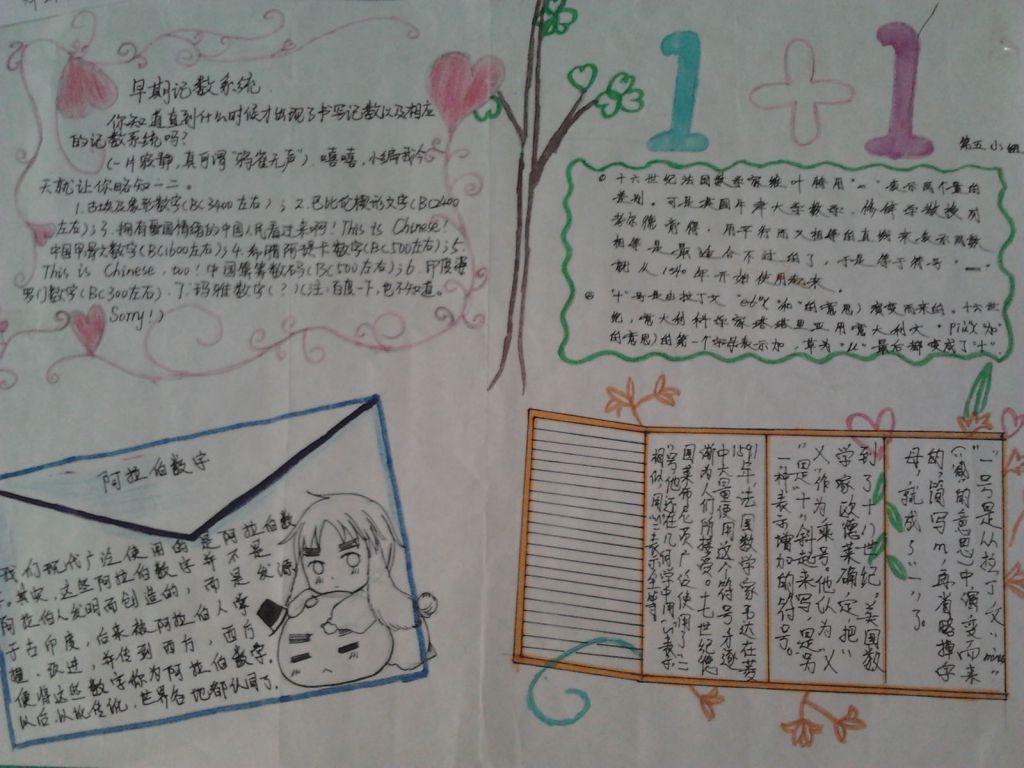 早期记数系统
你知道直到什么时候才出现了书写记数以及相应
的记数系统吗?
(一片寂静,真可谓"鸦雀无声"). 嘻嘻,小编我今
天就让你略知一二。
1.古埃及象形数字(BC3400左右);2.巴比伦楔形文字(BC2400
左右);3.拥有爱国情绪的中国人民看过来啊!This is Chinese!
中国甲骨文数字(BC1600左右);4.希腊阿提卡数字(BC500左右);5.
This is Chinese, too!中国筹算数码(BC500左右);6.印度婆
罗门数字(BC300左右). 7.玛雅数字(?)(注:百度一下,也不知道。
Sorry!)
1+1
第五小组
十六世纪法国数学家维叶特用"一"表示两个量的
差别。可是英国牛津大学数学、修辞学教授列
考尔德觉得,用平行而又相等的直线来表示两数
相等是最适合不过的了,于是等于符号"="
就从1540年开始使用起来。
"+"号是由拉丁文"et"("和"的意思)演变而来的。十六世
纪,意大利科学家塔塔里亚用意大利文"più"("加"
的意思)的第一个字母表示加,草为"μ"最后都变成了"+"。
阿拉伯数字
我们现代广泛使用的是阿拉伯数
字。其实,这些阿拉伯数字并不是
阿拉伯人发明而创造的,而是发源
于古印度,后来被阿拉伯人掌
握、改进,并传到西方,西方
便将这些数字称为阿拉伯数字。
以后,以讹传讹,世界各地都认同了。
"一"号是从拉丁文"minus"
(减的意思)中演变而来
的,简写m,再省略掉字
母,就成了"一"了。
到了十八世纪,美国数
学家欧德莱确定,把"
×"作为乘号。他认为"×
"是"十"斜起来写,是另
一种表示增加的符号。
1591年,法国数学家韦达在著
中大量使用这个符号,才逐
渐为人们所接受。十七世纪德
国莱布尼茨广泛使用了"="
号,他还在几何学中用"∽"表示
相似,用"≌"表示全等。